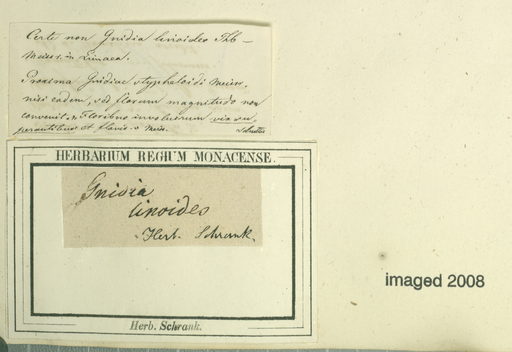 Certe non Gnidia linoides Thb –
Meisn. in Linnaea.
Proxima Gnidiae styphelioidi Meisn.
nisi eadem, sed florum magnitudo non
convenit, Floribus involucrum vix su-
perantibus et flavis. Meisn.
HERBARIUM REGIUM MONACENSE.
Gnidia
linoides
Herb. Schrank.
Herb. Schrank.
imaged 2008